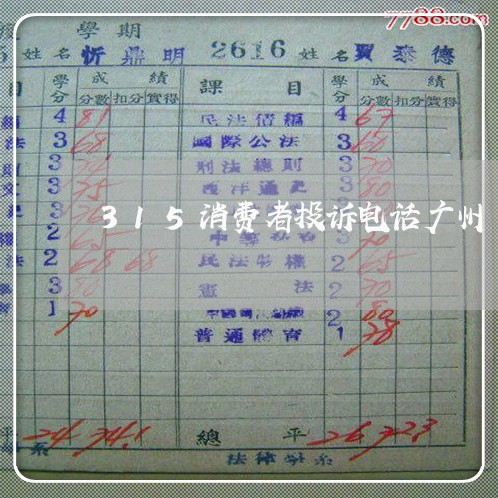 7788.com
學期
姓名 忻鼎明 2616 姓名 賈泰德
目 學分 成績 課目 學分 成績
分數 扣分 實得 分數 扣分 實得
4 81 民法債編 4 67
法 3 68 國際公法 3 60
則 3 刑法總則 3 70
3 75 西洋通史 3 80
3
315消费者投诉电话广州
2 65 70
法 2 68 68 民法物權 2 65
3 80 憲法 2 70
1 70 2 80
普通體育 1 78
平 24 74.1 總平 26 72.3
系 法律學系